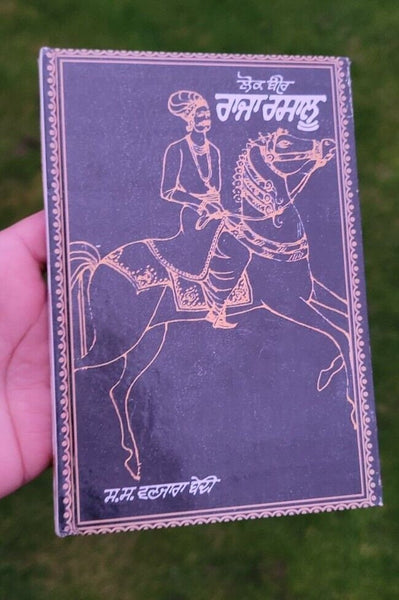 ਲੋਕ ਬੀਰ
ਰਾਜਾ ਰਸਾਲੂ
ਸ.ਸ. ਵਣਜਾਰਾ ਬੇਦੀ